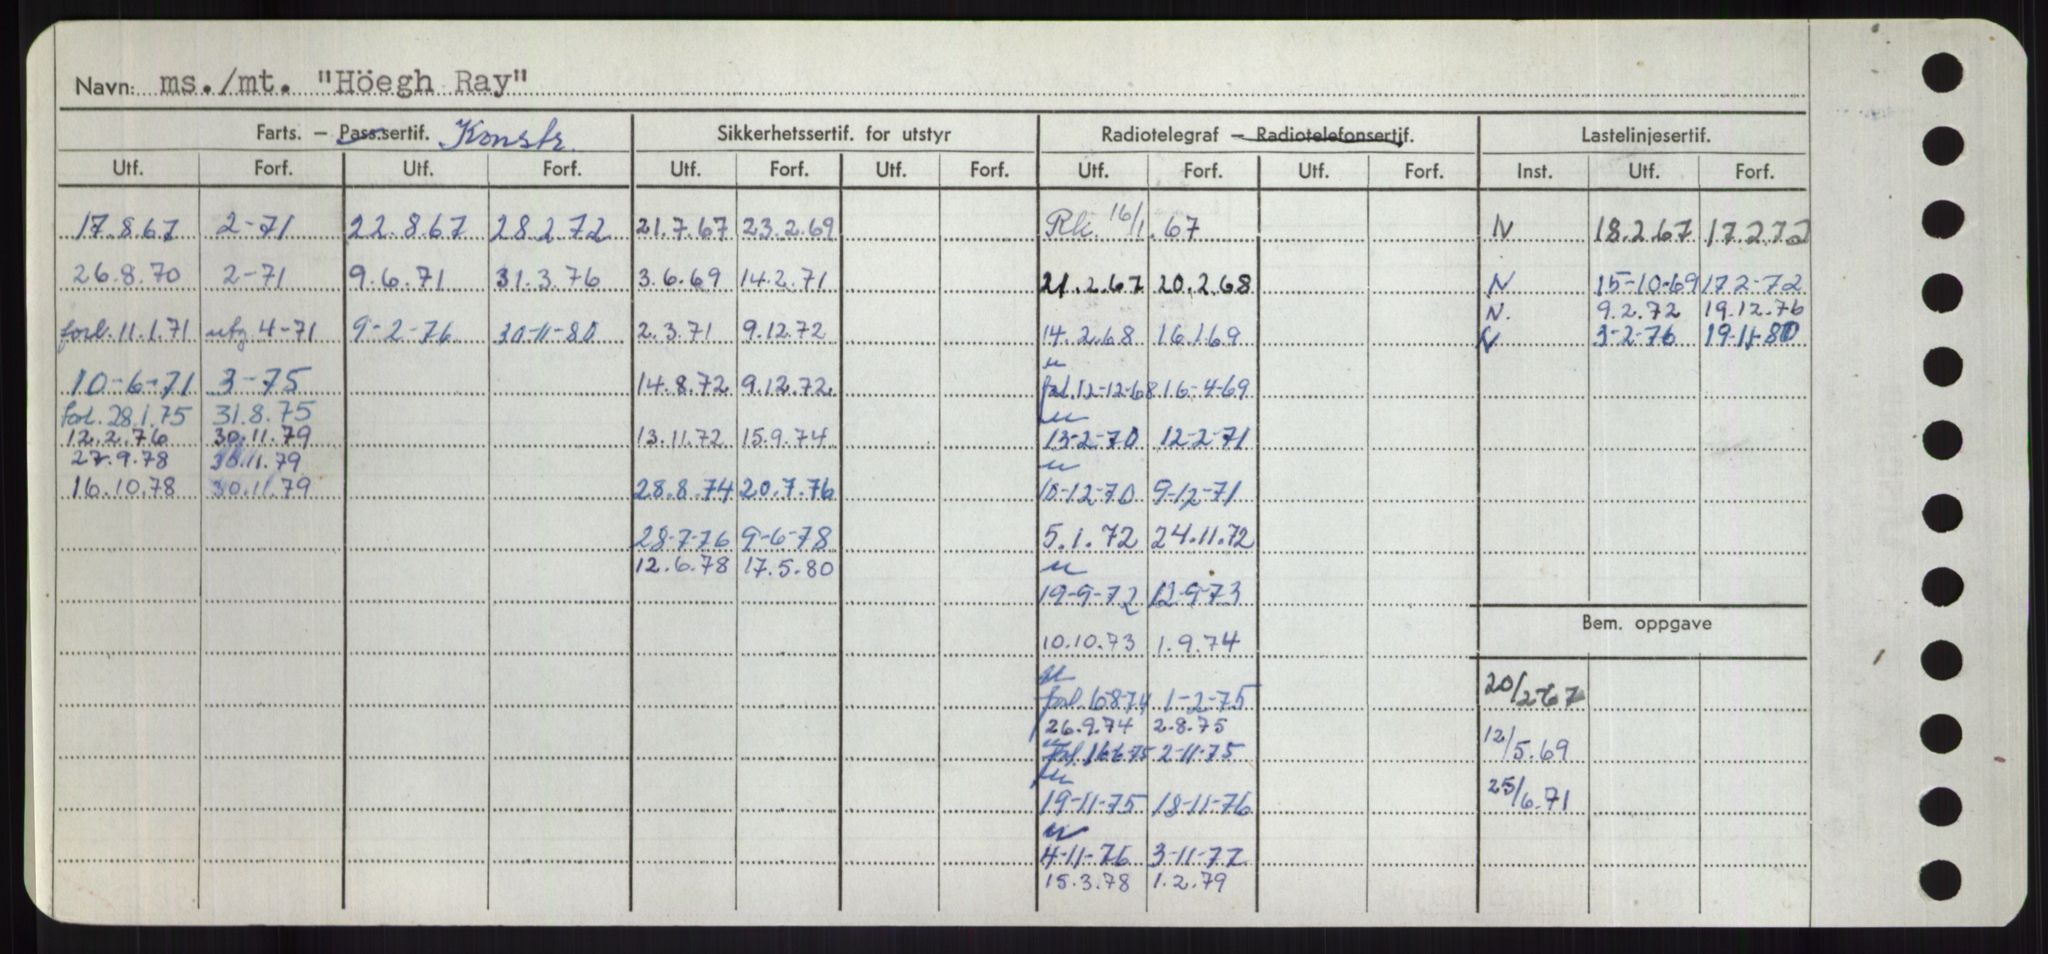 Navn: ms./mt. "Höegh Ray"
Farts. – Pass.sertif. Konstr. Sikkerhetssertif. for utstyr Radiotelegraf – Radiotelefonsertif. Lastelinjesertif.
Utf. Forf. Utf. Forf. Utf. Forf. Utf. Forf. Utf. Forf. Utf. Forf. Inst. Utf. Forf.
17.8.67 2-71 22.8.67 28.2.72 21.7.67 23.2.69 Rk. 16/1.67 N 18.2.67 17.2.72
26.8.70 2-71 9.6.71 31.3.76 3.6.69 14.2.71 21.2.67 20.2.68 N 15-10-69 17.2-72
N. 9.2.72 19.12.76
forl. 11.1.71 utg 4-71 9-2-76 30-11-80 2.3.71 9.12.72 14.2.68 16.1.69 3-2-76 19-11-80
10-6-71 3-75 14.8.72 9.12.72 forl. 12-12-68 16-4-69
forl. 28.1.75 31.8.75
12.2.76 30.11.79 13.11.72 15.9.74 13-2-70 12-2-71
27.9.78 30.11.79
16.10.78 30.11.79 28.8.74 20.7.76 10-12-70 9-12-71
28-7-76 9-6-78 5.1.72 24.11.72
12.6.78 17.5.80
19-9-72 12-9-73
Bem. oppgave
10.10.73 1.9.74
forl. 16874 1-2-75 20/2-67
26.9.74 2.8.75
forl. 16-6-75 2-11-75 12/5.69
19-11-75 18-11-76 25/6.71
4-11-76 3-11-77
15.3.78 1.2.79